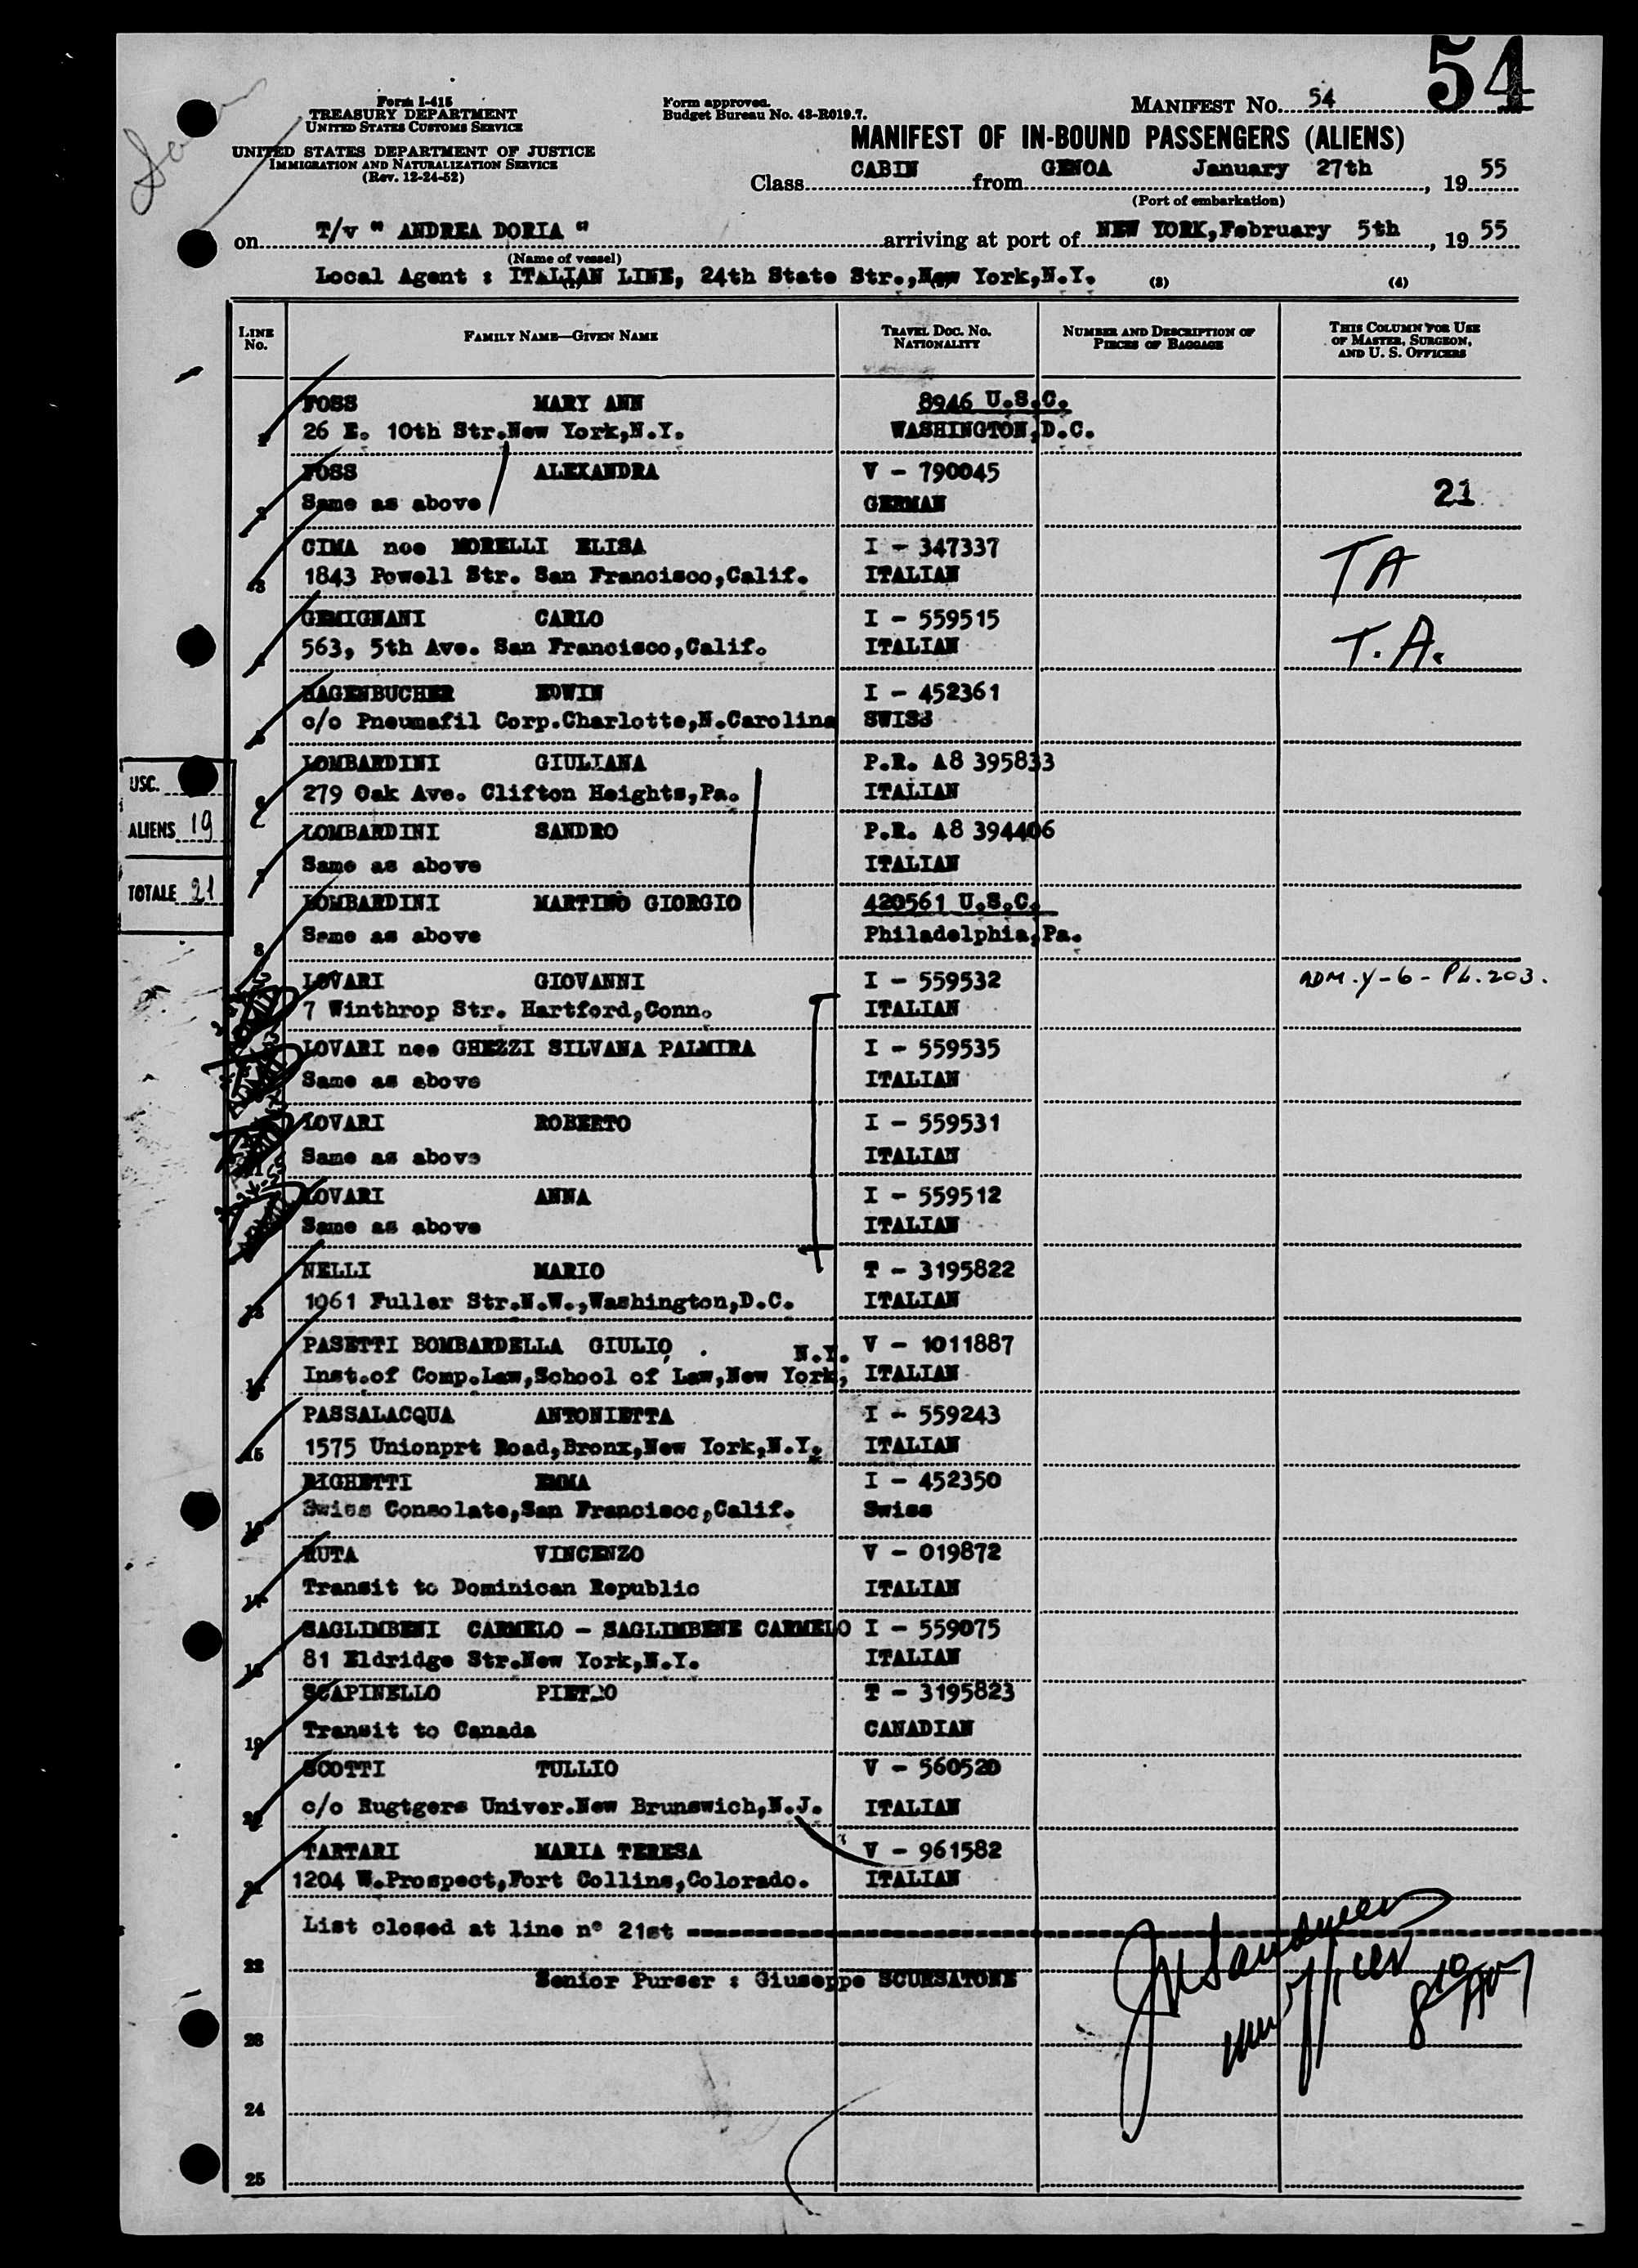 54
Form I-415
TREASURY DEPARTMENT
UNITED STATES CUSTOMS SERVICE
UNITED STATES DEPARTMENT OF JUSTICE
IMMIGRATION AND NATURALIZATION SERVICE
(Rev. 12-24-52)
Form approved.
Budget Bureau No. 43-R019.7.
MANIFEST No. 54
MANIFEST OF IN-BOUND PASSENGERS (ALIENS)
Class CABIN from GENOA January 27th, 19 55
(Port of embarkation)
on T/v " ANDREA DORIA " arriving at port of NEW YORK, February 5th, 19 55
(Name of vessel)
Local Agent : ITALIAN LINE, 24th State Str.,New York,N.Y.
(3) (4)
LINE No. FAMILY NAME—GIVEN NAME TRAVEL DOC. No. NATIONALITY NUMBER AND DESCRIPTION OF PIECES OF BAGGAGE THIS COLUMN FOR USE OF MASTER, SURGEON, AND U. S. OFFICERS
FOSS MARY ANN 8946 U.S.C.
26 E. 10th Str.New York,N.Y. WASHINGTON,D.C.
FOSS ALEXANDRA V - 790045
2 Same as above GERMAN 21
CIMA nee MORELLI ELISA I - 347337
3 1843 Powell Str. San Francisco,Calif. ITALIAN TA
GEMIGNANI CARLO I - 559515
4 563, 5th Ave. San Francisco,Calif. ITALIAN T.A.
HAGENBUCHER EDWIN I - 452361
5 c/o Pneumafil Corp.Charlotte,N.Carolina SWISS
LOMBARDINI GIULIANA P.R. A8 395833
6 279 Oak Ave. Clifton Heights,Pa. ITALIAN
LOMBARDINI SANDRO P.R. A8 394406
7 Same as above ITALIAN
LOMBARDINI MARTINO GIORGIO 420561 U.S.C.
8 Same as above Philadelphia,Pa.
USC.
ALIENS 19
TOTALE 21
LOVARI GIOVANNI I - 559532 ADM. Y-6-PL.203.
7 Winthrop Str. Hartford,Conn. ITALIAN
LOVARI nee GHEZZI SILVANA PALMIRA I - 559535
Same as above ITALIAN
LOVARI ROBERTO I - 559531
Same as above ITALIAN
LOVARI ANNA I - 559512
Same as above ITALIAN
NELLI MARIO T - 3195822
13 1061 Fuller Str.N.W.,Washington,D.C. ITALIAN
PASETTI BOMBARDELLA GIULIO V - 1011887
N.Y.
14 Inst.of Comp.Law,School of Law,New York, ITALIAN
PASSALACQUA ANTONIETTA I - 559243
15 1575 Unionprt Road,Bronx,New York,N.Y. ITALIAN
RIGHETTI EMMA I - 452350
16 Swiss Consolate,San Francisco,Calif. Swiss
RUTA VINCENZO V - 019872
17 Transit to Dominican Republic ITALIAN
SAGLIMBENI CARMELO - SAGLIMBENE CARMELO I - 559075
18 81 Eldridge Str.New York,N.Y. ITALIAN
SCAPINELLO PIETRO T - 3195823
19 Transit to Canada CANADIAN
SCOTTI TULLIO V - 560520
20 c/o Rugtgers Univer.New Brunswich,N.J. ITALIAN
TARTARI MARIA TERESA V - 961582
21 1204 W.Prospect,Fort Collins,Colorado. ITALIAN
List closed at line n° 21st
22
Senior Purser : Giuseppe SCURSATONE
23
24
25